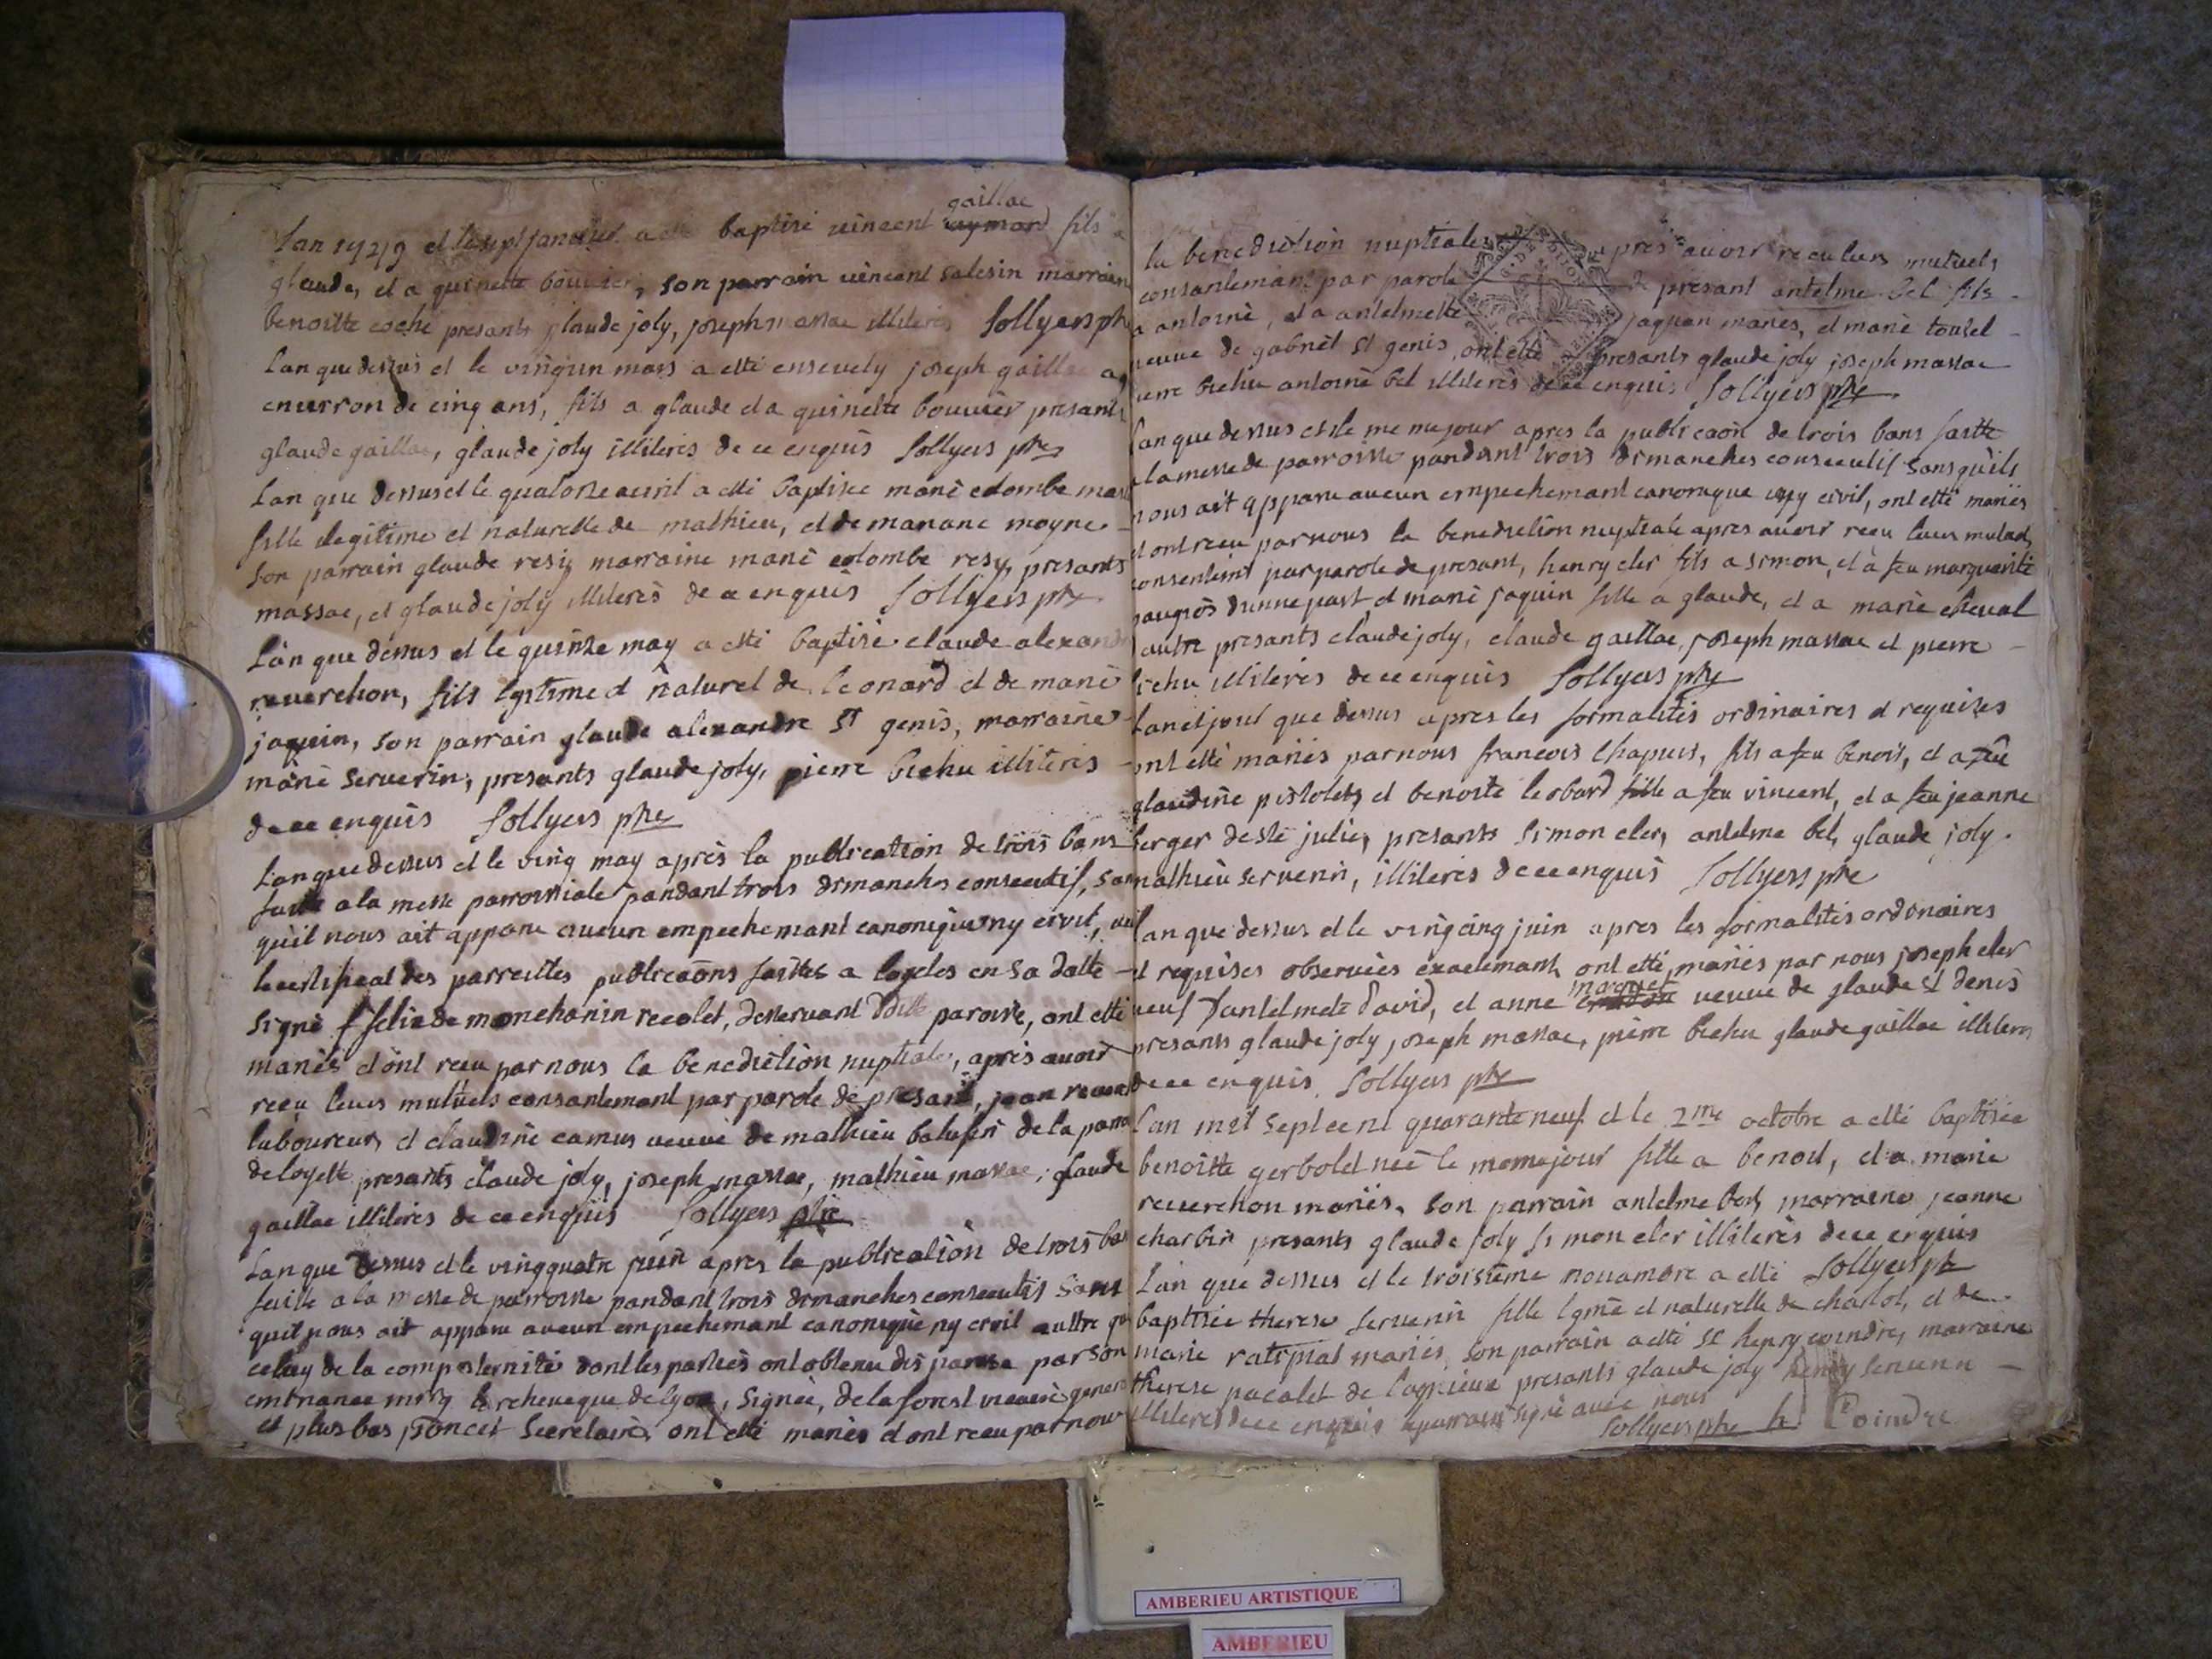 gaillac
Lan 1749 et le sept janvier a esté baptisé vincent aymard fils a
glaude, et a quinette bouvier, son parrain vincent salesin marraine
benoitte coche presants glaude joly, joseph massac illiterés Sollyers ptre
Lan que dessus et le vingun mars a esté ensevely joseph gaillac
enverron de cinq ans, fils a glaude et a quinette bouvier presants
glaude gaillac, glaude joly illiterés de ce enquis Sollyers ptre
Lan que dessus et le quatorze avril a esté baptisée marié colombe
fille legitime et naturelle de mathieu, et de mariane moyne
son parrain glaude resy, marraine marié colombe resy, presants
massac, et glaude joly illiterés de ce enquis Sollyers ptre
Lan que dessus et le quinze may a esté baptisé claude alexandre
reverchon, fils lgitime et naturel de leonard et de marié
jaquin, son parrain glaude alexandre st genis, marraine
marié serverin, presants glaude joly, pierre bichu illiterés
de ce enquis Sollyers ptre
Lan que dessus et le ving may après la publication de trois bans
faitte a la messe parroissiale pandant trois dimanches consecutif, sans
quil nous ait apparu aucun empechemant canonique ny civil,
le certificat des parreilles publicaõns faittes a loyetes en sa datte
signé f felix de monchanin recolet, desservant paroisse, ont esté
mariés et ont recu par nous la benediction nuptiale, après avoir
recu leurs mutuels consantemant par parole de presant, jean
laboureur, et claudine camus veuve de mathieu de la
de loyette presants claude joly, joseph massac, mathieu massac, glaude
gaillac illiterés de ce enquis Sollyers ptre
Lan que dessus et le vingquatre juin apres la publication de trois bans
faitte a la messe de parroisse pandant trois dimanches consecutifs sans
quil nous ait apparu aucun empechemant canonique ny civil aultre que
celuy de la compaternité dont les parties ont obtenu dispanse par son
eminance larcheveque de lyon, signée, de la forest vicaire general
et plus bas, poncet Secretaire, ont esté mariés et ont recu par nous
la benediction nuptiale après avoir recu leurs mutuels
consantemant par parole de presant antelme bel fils
a antoine, et a antelmette jaquan mariés, et marié tousel
veuve de gabriel st genis, ont esté presants glaude joly joseph massac
pierre bichu antoine bel illiterés de ce enquis Sollyers ptre
Lan que dessus et le meme jour apres la publicaõn de trois bans faitte
a la messe de parroisse pandant trois dimanches consecutif sans quils
nous ait apparu aucun empechemant canonique ny civil, ont esté mariés
et ont recu par nous la benediction nuptiale apres avoir recu leurs mutuels
consentemt par parole de presant, henry cler fils a simon, et à feu marguerite
dunne part et marié jaquin fille a glaude, et a marie cheval
autre presants claude joly, claude gaillac, joseph massac et pierre
bichu illiterés de ce enquis Sollyers ptre
Lan et jour que dessus apres les formalités ordinaires et requises
ont esté mariés par nous francois Chapuis, fils a feu benoit, et a feu
glaudine pistolet, et benoite fille a feu vincent, et a feu jeanne
berger de ste julie, presants simon cler, antelme bel, glaude joly.
mathieu servenin, illiterés de ce enquis Sollyers ptre
Lan que dessus et le vingcinq juin apres les formalités ordinaires
et requises observées exactemant, ont esté mariés par nous joseph cler
marquet
veuf dantelmete david, et anne veuve de glaude st denis
presants glaude joly, joseph massac, pierre bichu glaude gaillac illiterés
de ce enquis Sollyers ptre
Lan mil septcent quarante neuf et le 2me octobre a esté baptisée
benoitte gerbolet née le meme jour fille a benoit, et a marie
reverchon mariés, son parrain antelme bel, marraine jeanne
charbin presants glaude joly simon cler illiterés de ce enquis
Lan que dessus et le troisième novambre a esté Sollyers ptr
baptisée therese servenin fille lgme et naturelle de charlot, et de
marie mariés, son parrain a esté sr henry coindre, marraine
therese pacalet de lagnieux presants glaude joly henry servenin
illiterés de ce enquis signé avec nous
Sollyers ptre h Coindre
AMBERIEU ARTISTIQUE
AMBERIEU